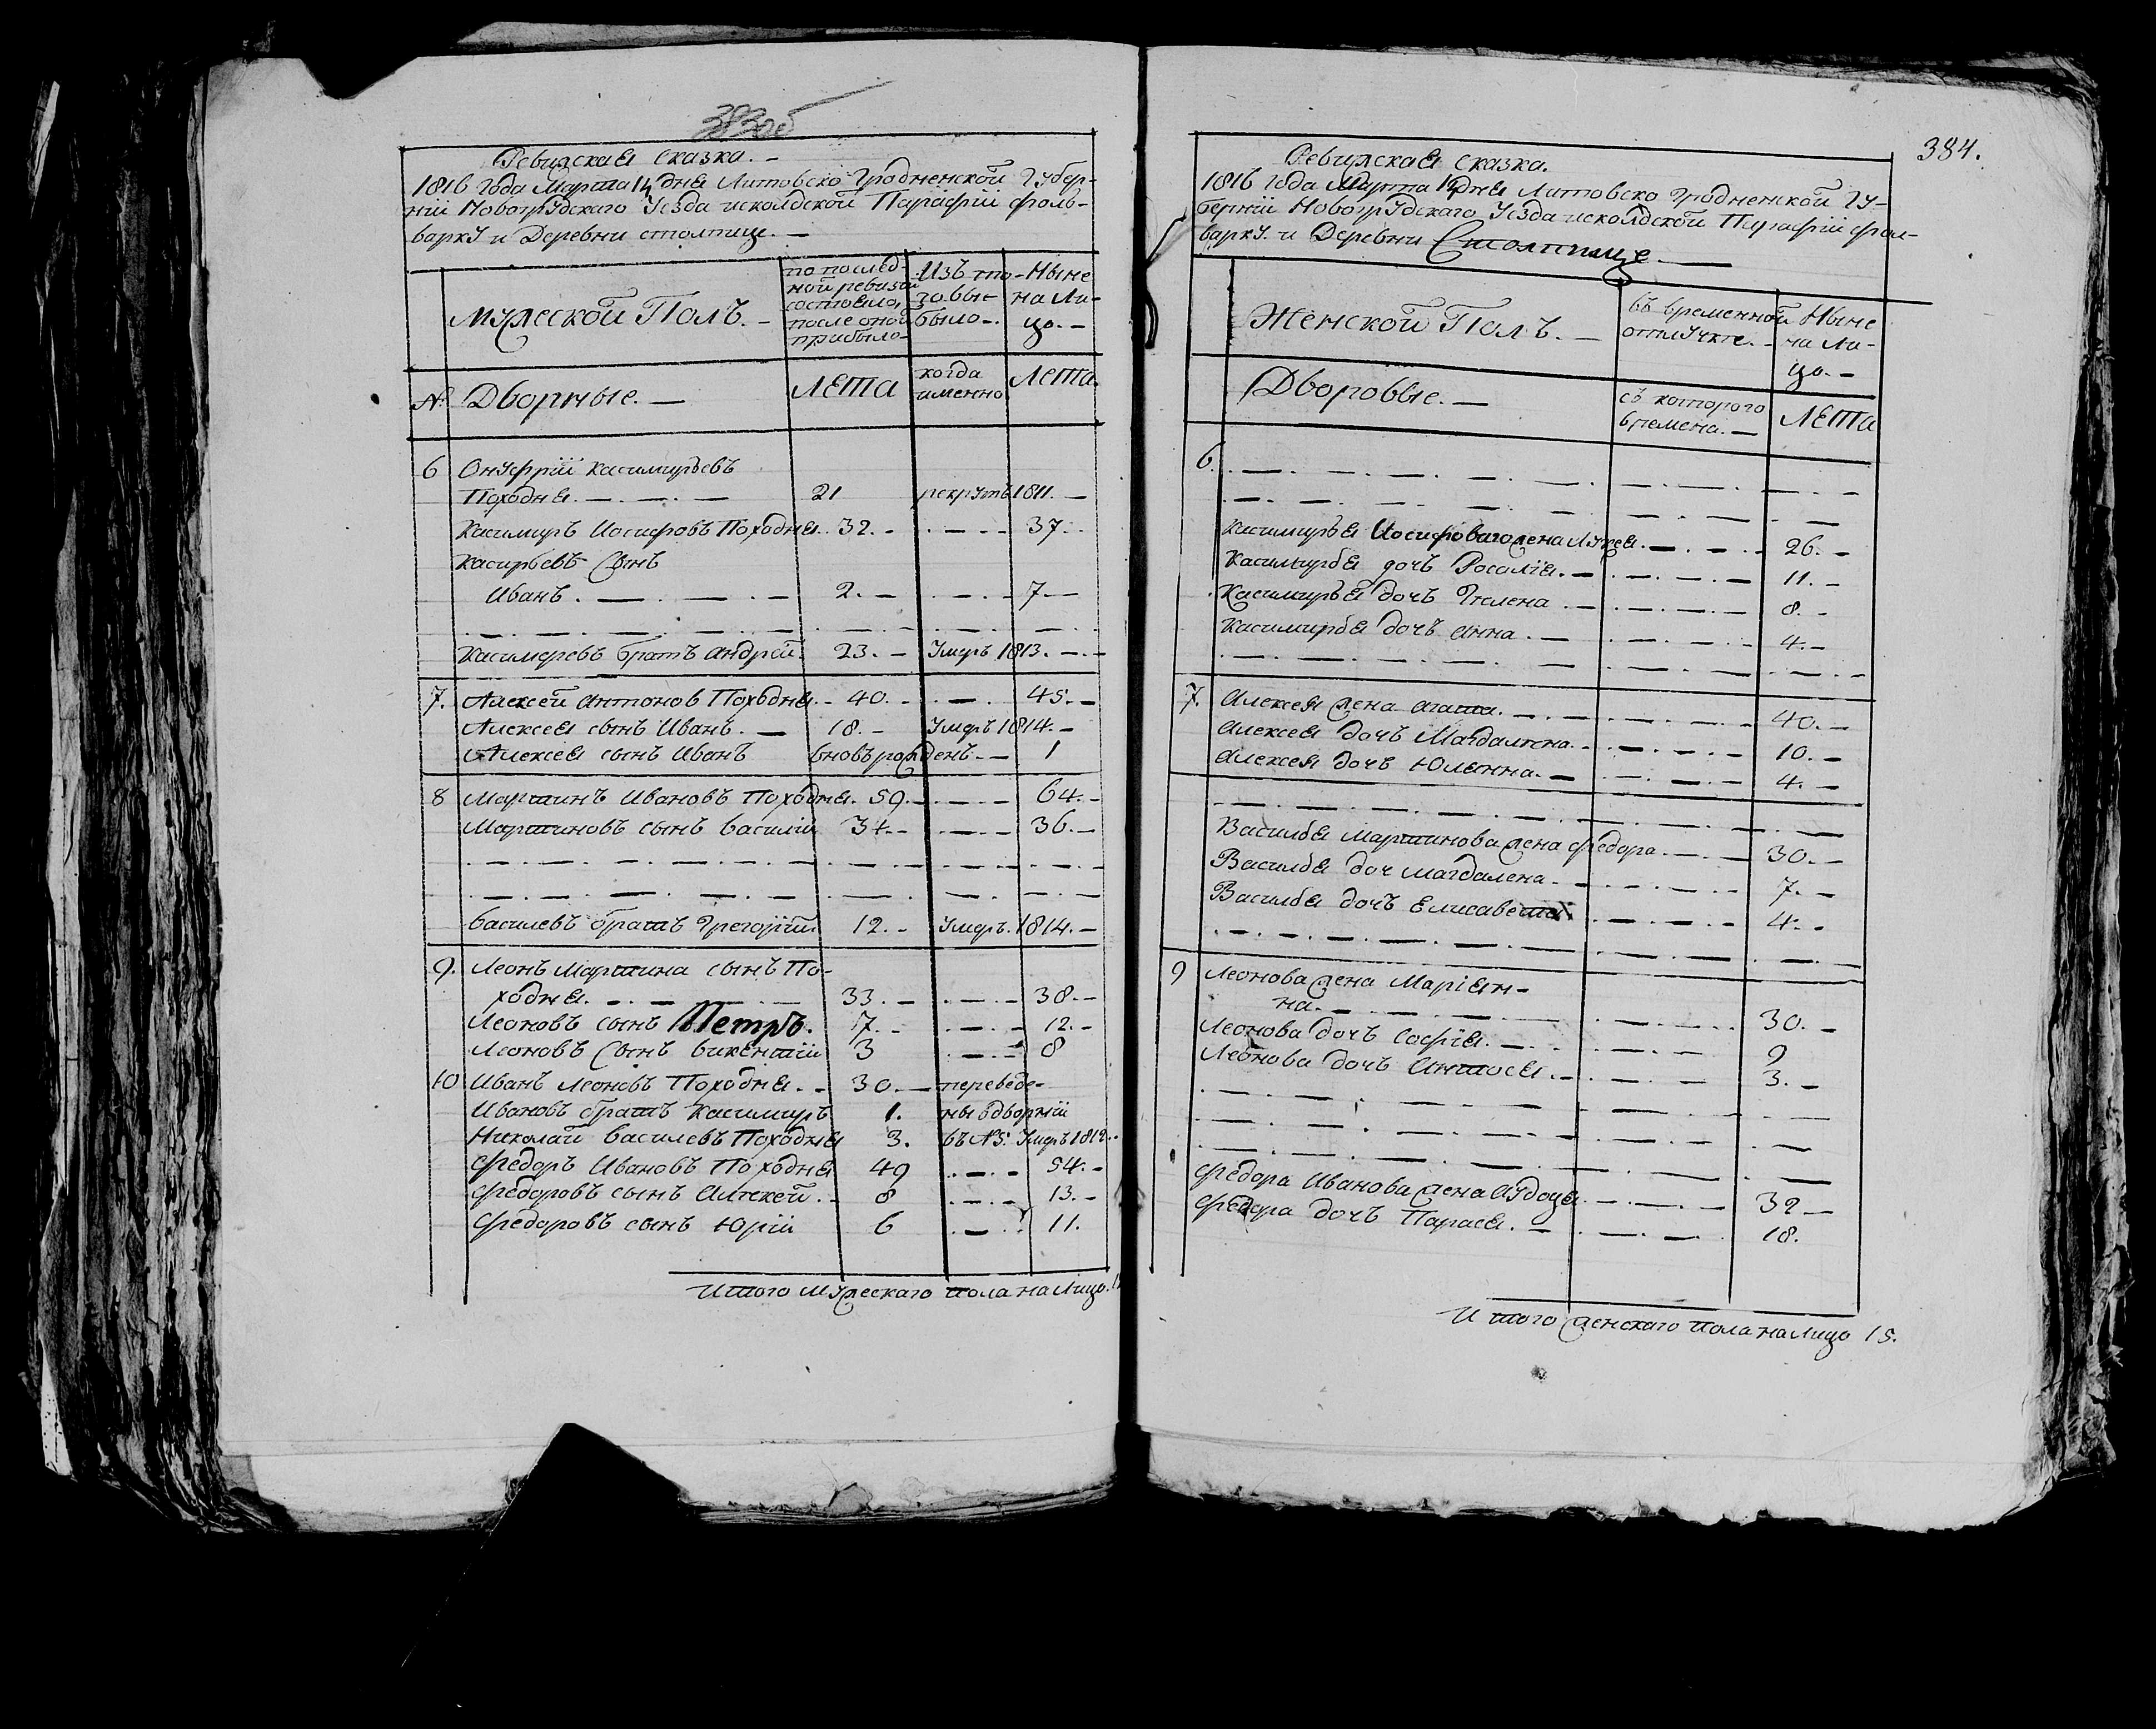 383об
Ревизская сказка. —
1816 года Марта 14 дня Литовско Гродненской Губер-
нїи Новогрудскаго Уезда исколдской Парафїи фоль-
варку и Деревни столпище. —
Мужеской Полъ. —
по послед-
ной ревизїи
состояло,
после оной
прибыло
Изъ то-
го вы-
было —
Ныне
на Ли-
цо. —
№ Дворные. —
Лета
когда
именно
Лета.
6 Онуфрїй касимиръевъ
Походня. — 21 рекрутъ 1811. —
Касимиръ Иосифовъ Походня. 32. — 37.
Касиръевъ Сынъ
Иванъ. — 2. — 7 —
Касимеревъ братъ андрей. 23. — Умеръ 1813. —
7. Алексей антонов Походня — 40. — 45. —
Алексея сынъ Иванъ. — 18. — Умеръ 1814. —
Алексея сынъ Иванъ вновь рожденъ — 1
8 Мартинъ Ивановъ Походня. 59. — 64. —
Мартиновъ сынъ василїй 31 — 36. —
василевъ братъ Григорїй 12. — Умеръ. 1814. —
9. Леонъ Мартина сынъ По-
ходня. — 33. — 38. —
Леоновъ сынъ Петръ. 7. — 12. —
Леоновъ Сынъ викентїй 3 8
10 Иванъ Леоновъ Походня. — 30. — переведе-
Ивановъ братъ Касимиръ 1. ны в дворнїи
Николай василевъ Походня 3. въ №5. Умеръ 1812.
Федоръ Ивановъ Походня 49 54. —
Федоровъ сынъ Алексей. — 8 13. —
Федоровъ сынъ Юрїй 6 11.
Итого мужескаго пола на Лицо.
384.
Ревизская сказка.
1816 года Марта 14 дня Литовско Гродненской Гу-
бернїи Новогрудскаго Уезда исколдской Парафїи фол-
варку. и Деревни Столпище —
Женской Полъ. —
въ временной
отлучке. —
Ныне
на Ли-
цо. —
Дворовые. —
съ которого
времена. —
Лета
6.
Касимиръя Иосифова жена Луция. — 26. —
Касимиръя дочъ Росалїя. — 11. —
Касимиръя дочъ Гелена. — 8. —
Касимиръя дочъ анна. — 4. —
7. Алексея жена агата. — 40. —
Алексея дочъ Магдалена. — 10. —
Алексея дочъ Юлянна. — 4. —
Василья Мартинова жена федора. — 30. —
Василья доч магдалена. — 7. —
Василья дочъ Елисавета. 4. —
9 Леонова жена Марїян-
на. — 30. —
Леонова дочъ Софїя. — 9
Леонова дочъ Антося. — 3. —
Федора Иванова жена Аудоця. — 32 —
Федора дочъ Парася. — 18.
Итого женскаго пола на Лицо 15.